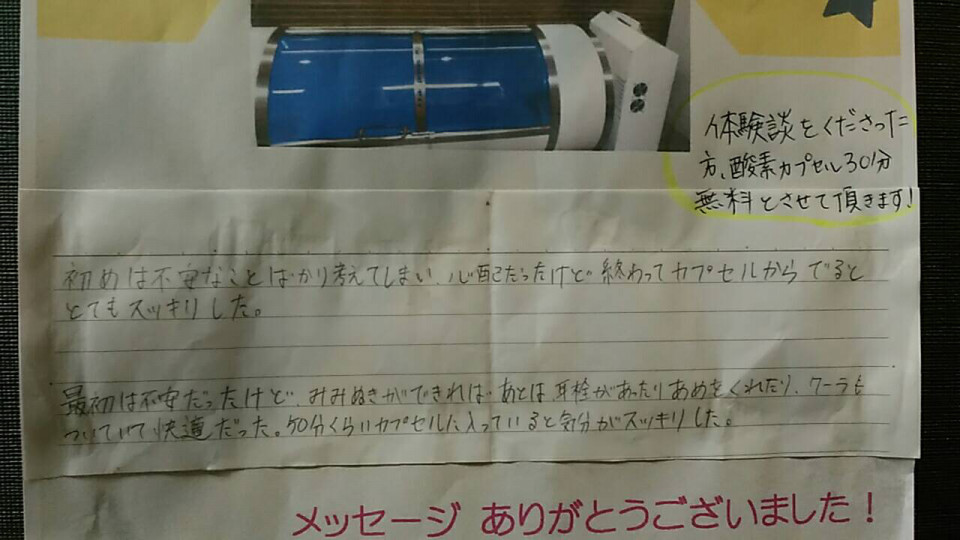 体験談をくださった
方、酸素カプセル30分
無料とさせて頂きます!
初めは不安なことばかり考えてしまい、心配だったけど 終わってカプセルから でると
とてもスッキリした。
最初は不安だったけど、みみぬきができれば あとは 耳栓があったりあめをくれたり、クーラも
ついていて快適だった。50分くらいカプセルに入っていると気分がスッキリした。
メッセージ ありがとうございました!